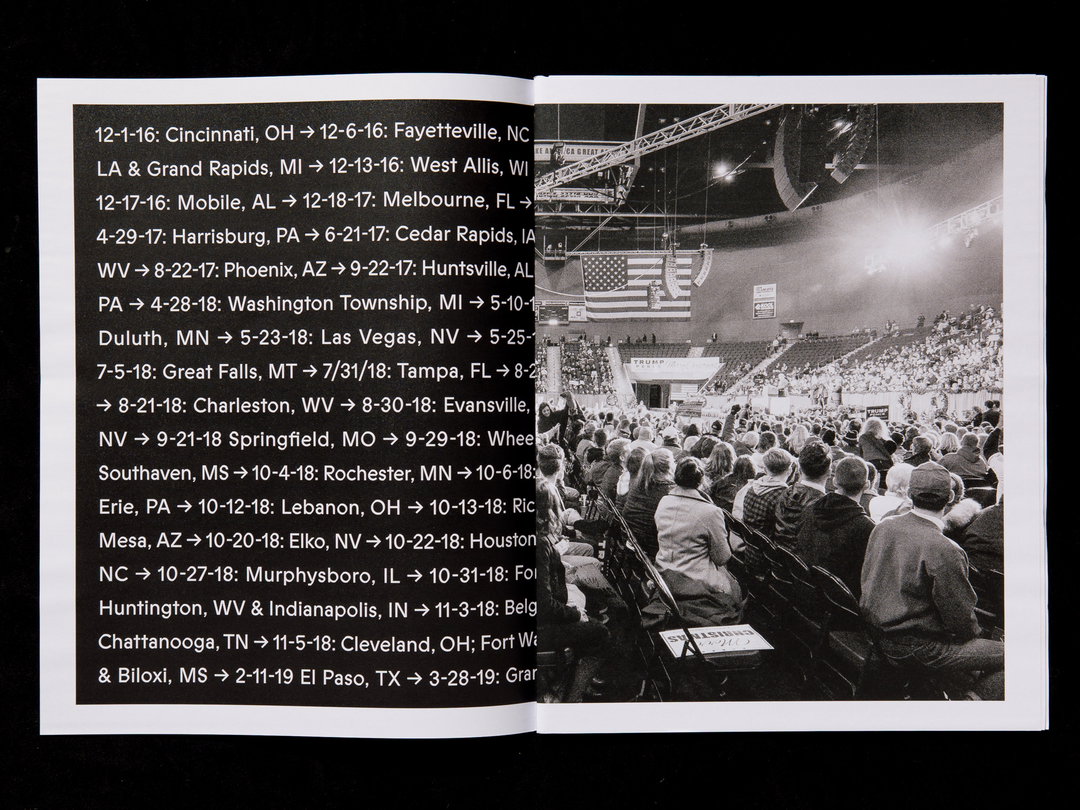 12-1-16: Cincinnati, OH → 12-6-16: Fayetteville, NC
LA & Grand Rapids, MI → 12-13-16: West Allis, WI
12-17-16: Mobile, AL → 12-18-17: Melbourne, FL →
4-29-17: Harrisburg, PA → 6-21-17: Cedar Rapids, IA
WV → 8-22-17: Phoenix, AZ → 9-22-17: Huntsville, AL
PA → 4-28-18: Washington Township, MI → 5-10-1
Duluth, MN → 5-23-18: Las Vegas, NV → 5-25-
7-5-18: Great Falls, MT → 7/31/18: Tampa, FL → 8-2
→ 8-21-18: Charleston, WV → 8-30-18: Evansville,
NV → 9-21-18 Springfield, MO → 9-29-18: Whee
Southaven, MS → 10-4-18: Rochester, MN → 10-6-18:
Erie, PA → 10-12-18: Lebanon, OH → 10-13-18: Ric
Mesa, AZ → 10-20-18: Elko, NV → 10-22-18: Houston
NC → 10-27-18: Murphysboro, IL → 10-31-18: For
Huntington, WV & Indianapolis, IN → 11-3-18: Belg
Chattanooga, TN → 11-5-18: Cleveland, OH; Fort Wa
& Biloxi, MS → 2-11-19 El Paso, TX → 3-28-19: Gran
KE AMERICA GREAT
TRUMP
TRUMP
CHRISTMAS